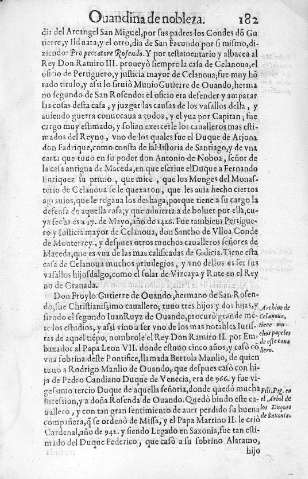 Ouandina de nobleza. 182
dia del Arcangel San Miguel, por sus padres los Condes dō Gu
tierre, y Ilduara, y el otro, dia de San Facundo por si mismo, di
ziendo: Pro peccatore Rosendo. Y por testamentario y albacea al
Rey Don Ramiro III. proueyò siempre la casa de Celanoua, el
oficio de Pertiguero, y justicia mayor de Celanoua, fue muy hō
rado titulo, y assi lo siruiò Munio Gutierre de Ouando, herma
no segundo de San Rosendo: el oficio era defender y amparar
las cosas desta casa, y juzgar las causas de los vasallos della, y
auiendo guerra conuocaua a todos, y el yua por Capitan; fue
cargo muy estimado, y solian exercerle los caualleros mas esti
mados del Reyno, vno de los quales fue el Duque de Arjona
don Fadrique, como consta de la Historia de Santiago, y de vna
carta que tuuo en su poder don Antonio de Noboa, señor de
la casa antigua de Maceda, en que escriue el Duque a Fernando
Enriquez su primo, que mire, que los Monges del Monas-
terio de Celanoua se le quexaron, que les auia hecho ciertos
agrauios, que le rogaua los deshaga, porque tiene a su cargo la
defensa de aquella casa, y que adonde ha de boluer por ella,
ya fecha en 17. de Mayo, año de 1422. Fue tambien Pertigue-
ro y Iusticia mayor de Celanoua, don Sancho de Vlloa, Conde
de Monterrey, y despues otros muchos caualleros señores de
Maceda, que es vna de las mas calificadas de Galicia. Tiene esta
casa de Celanoua muchos priuilegios, y vno dellos es ser sus
vasallos hijosdalgo, como el solar de Vizcaya, y Rute en el Rey
no de Granada.
Don Froylo Gutierre de Ouando, hermano de San Rosen-
do, fue Christianissimo cauallero, tuuo tres hijos, y dos hijas, y
siendo el segundo Iuan Ruyz de Ouando, procurò grande mē
te los estudios, y assi vino a ser vno de los mas notables Iuris-
tas de aquel tiēpo, nombrole el Rey don Ramiro II. por Em-
baxador al Papa Leon VII. donde estuuo cinco años, y casò cō
vna sobrina deste Pontifice, llamada Bertola Manlio, de quien
tuuo a Rodrigo Manlio de Ouando, que despues casò con hi-
ja de Pedro Candiano Duque de Venecia, era de 966. y fue vi-
gesimo tercio Duque de aquella señoria, donde quedò mucha
sucession, y a doña Rosenda de Ouando. Quedò biudo este ca-
uallero, y con tan gran sentimiento de auer perdido su buena
compañera, q̄ se ordenò de Missa, y el Papa Martino II. le criò
Cardenal, año de 942. y siendo Legado en Saxonia, fue tan esti-
mado del Duque Federico, que casò a su sobrino Aleramo,
hijo
Archiuo de
Celanoua,
tiene mu-
chos papeles
de este caua
llero.